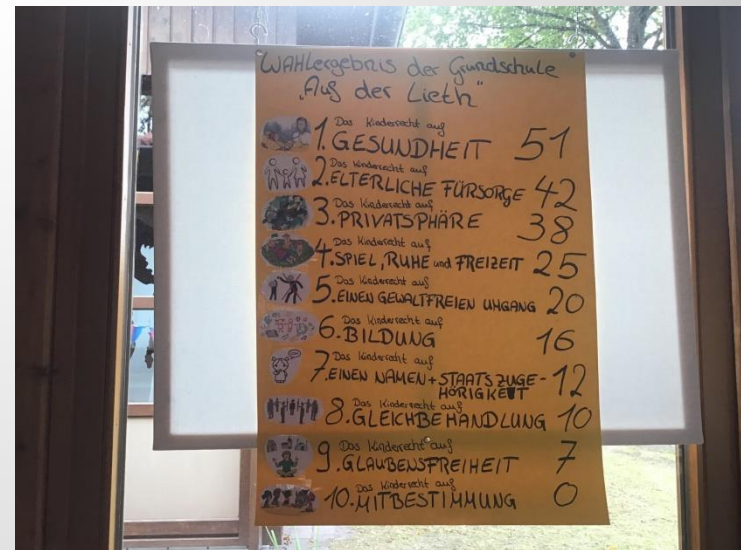 WAHLergebnis der Grundschule
"Auf der Lieth"
Das Kinderrecht auf
1. GESUNDHEIT 51
Das Kinderrecht auf
2. ELTERLICHE FÜRSORGE 42
Das Kinderrecht auf
3. PRIVATSPHÄRE 38
Das Kinderrecht auf
4. SPIEL, RUHE und FREIZEIT 25
Das Kinderrecht auf
5. EINEN GEWALTFREIEN UMGANG 20
Das Kinderrecht auf
6. BILDUNG 16
Das Kinderrecht auf
7. EINEN NAMEN + STAATSZUGE- 12
HÖRIGKEIT
Das Kinderrecht auf
8. GLEICHBEHANDLUNG 10
Das Kinderrecht auf
9. GLAUBENSFREIHEIT 7
Das Kinderrecht auf
10. MITBESTIMMUNG 0